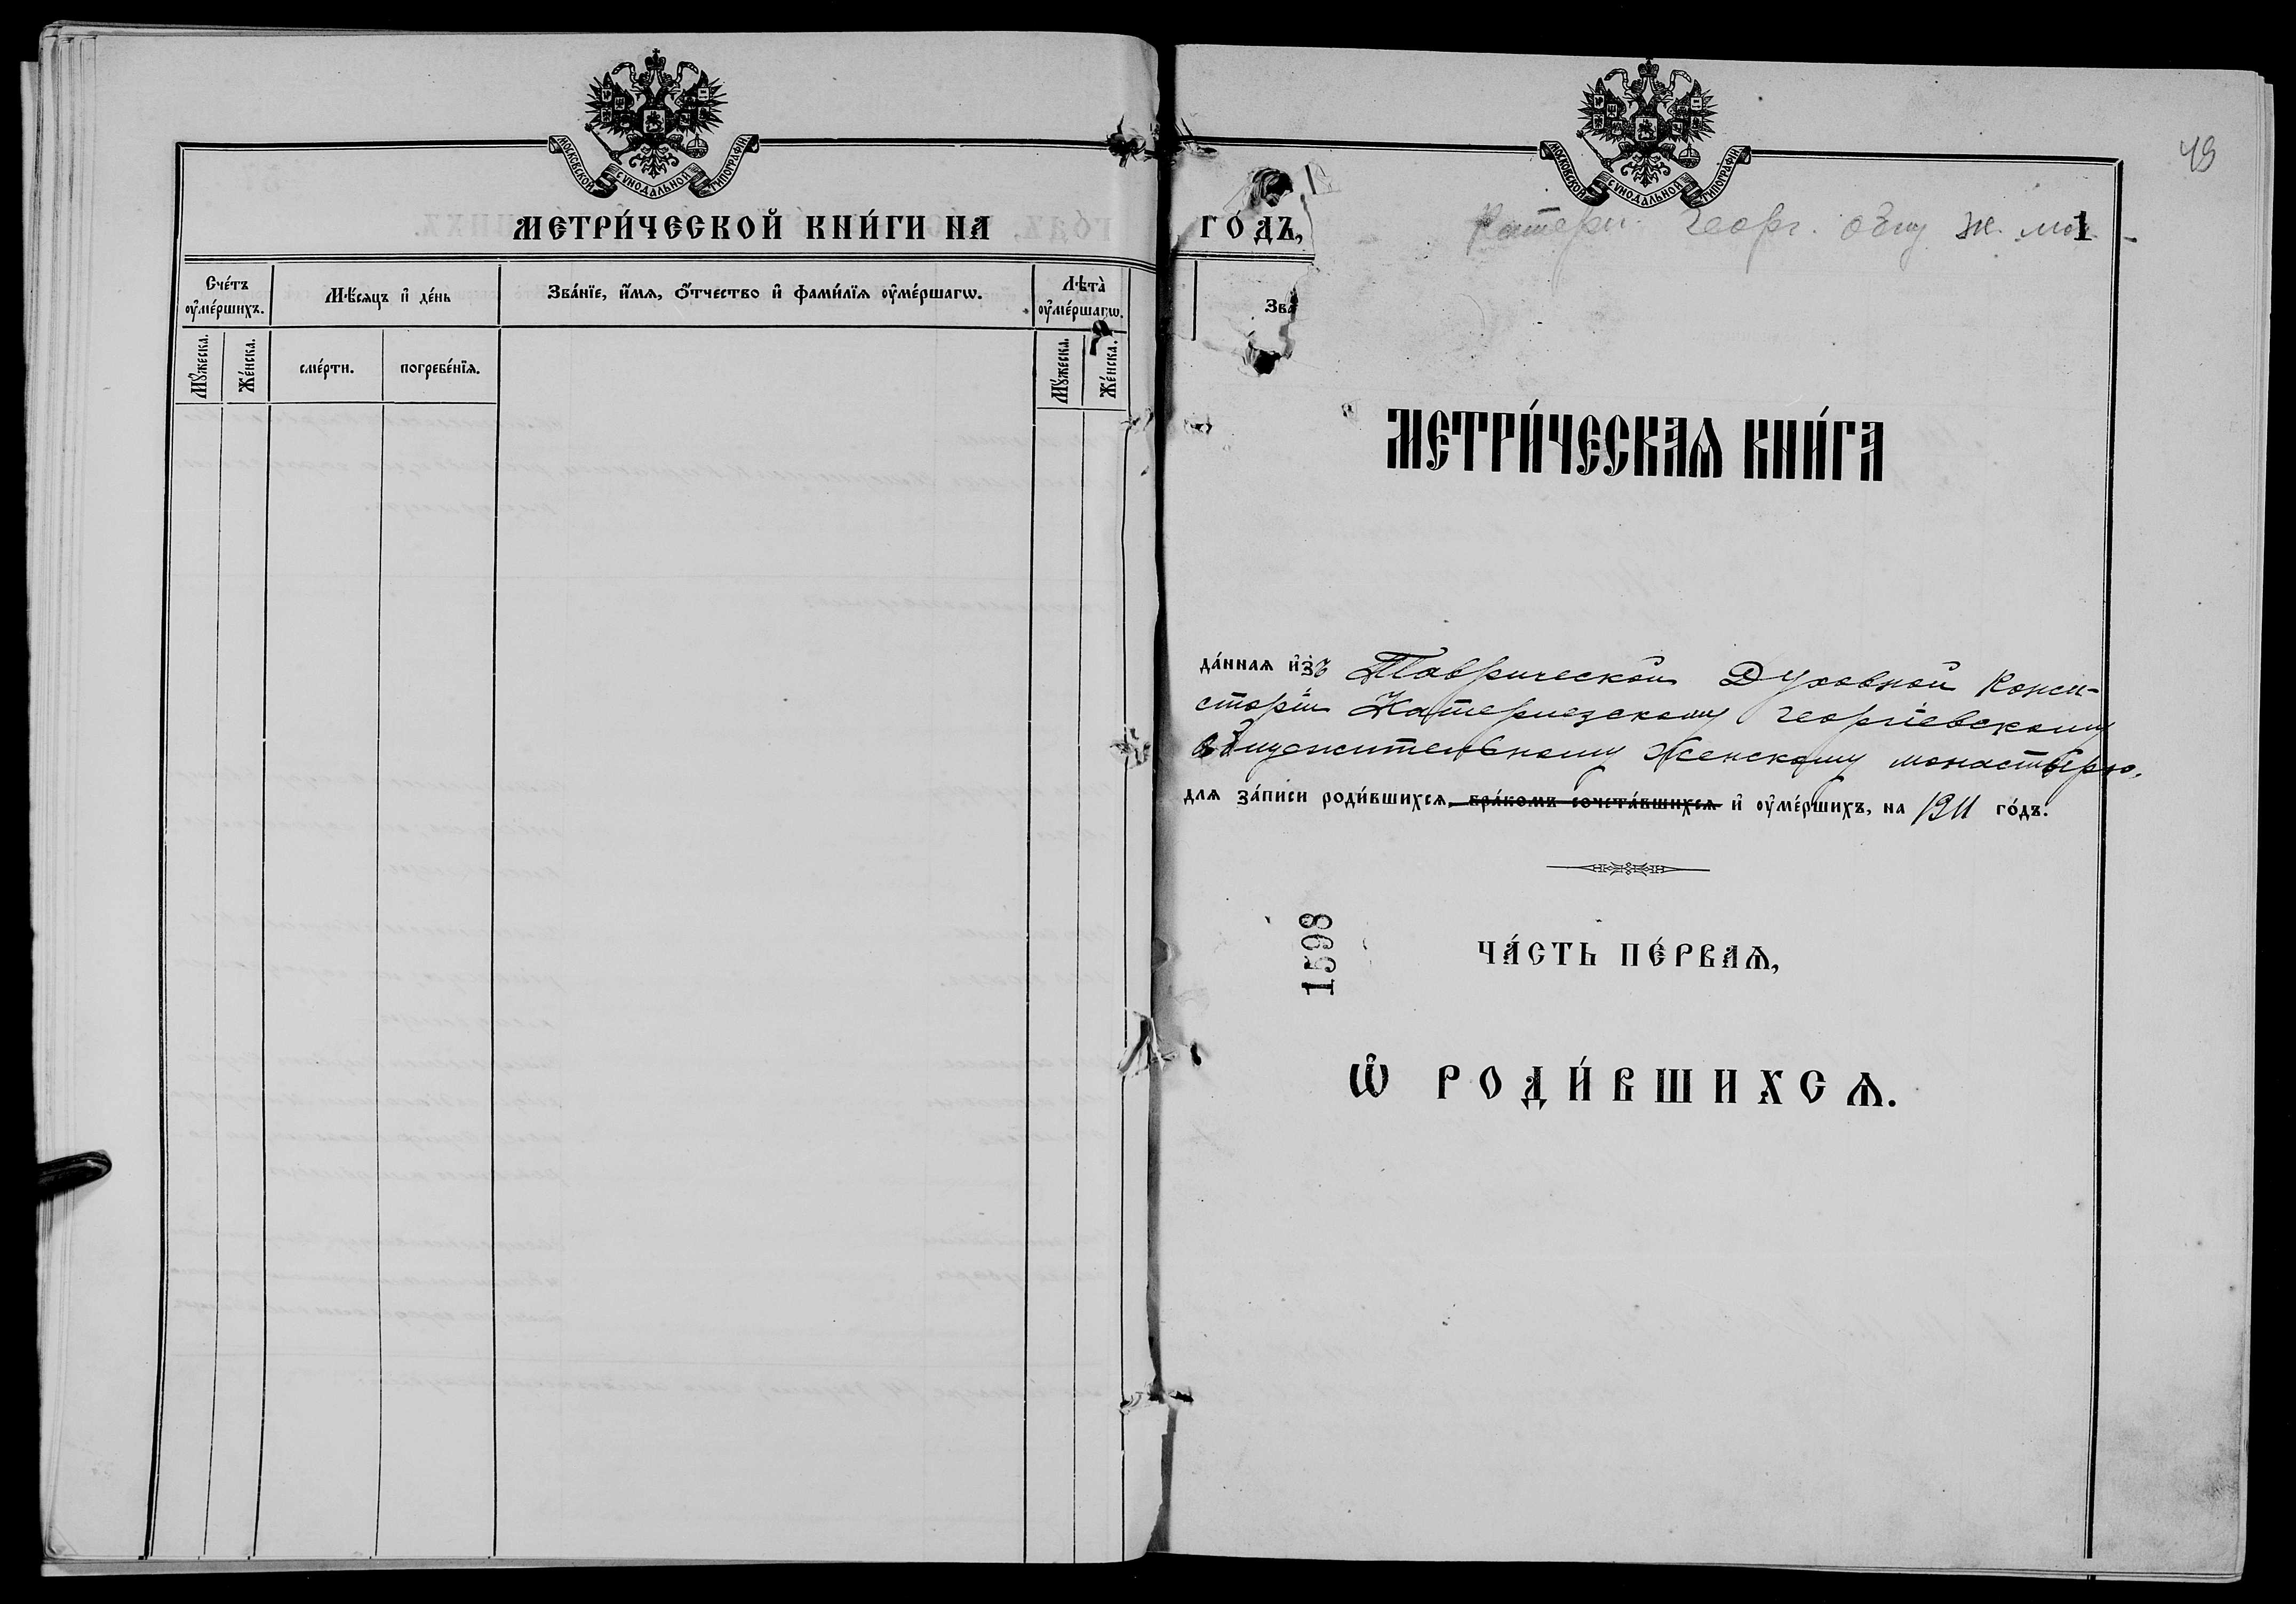 МОСКОВСКОЙ СѴНОДАЛЬНОЙ ТИПОГРАФІИ
МЕТРИ́ЧЕСКОЙ КНИ́ГИ НА
Сче́тъ ᲂу҆ме́ршихъ.
Мѣ́сѧцъ и҆ де́нь
Зва́нїе, и҆́мѧ, ѻ҆́тчество и҆ фами́лїѧ ᲂу҆ме́ршагѡ.
Лѣта̀ ᲂу҆ме́ршагѡ.
Мꙋ́жеска.
Же́нска.
сме́рти.
погребе́нїѧ.
Мꙋ́жеска.
Же́нска.
ГО́ДЪ,
Зва́
МОСКОВСКОЙ СѴНОДАЛЬНОЙ ТИПОГРАФІИ
49
Катерл. Георг. общ ж. мон
1
МЕТРИ́ЧЕСКАѦ КНИ́ГА
да́ннаѧ и҆зъ Таврической Духовной Конси-
сторіи Катерлезскому Георгіевскому
общежительному Женскому монастырю,
длѧ за́писи роди́вшихсѧ, бра́комъ сочета́вшихсѧ и҆ ᲂу҆ме́ршихъ, на 1911 го́дъ.
1598
ЧА́СТЬ ПЕ́РВАѦ,
Ѡ҆ РОДИ́ВШИХСѦ.